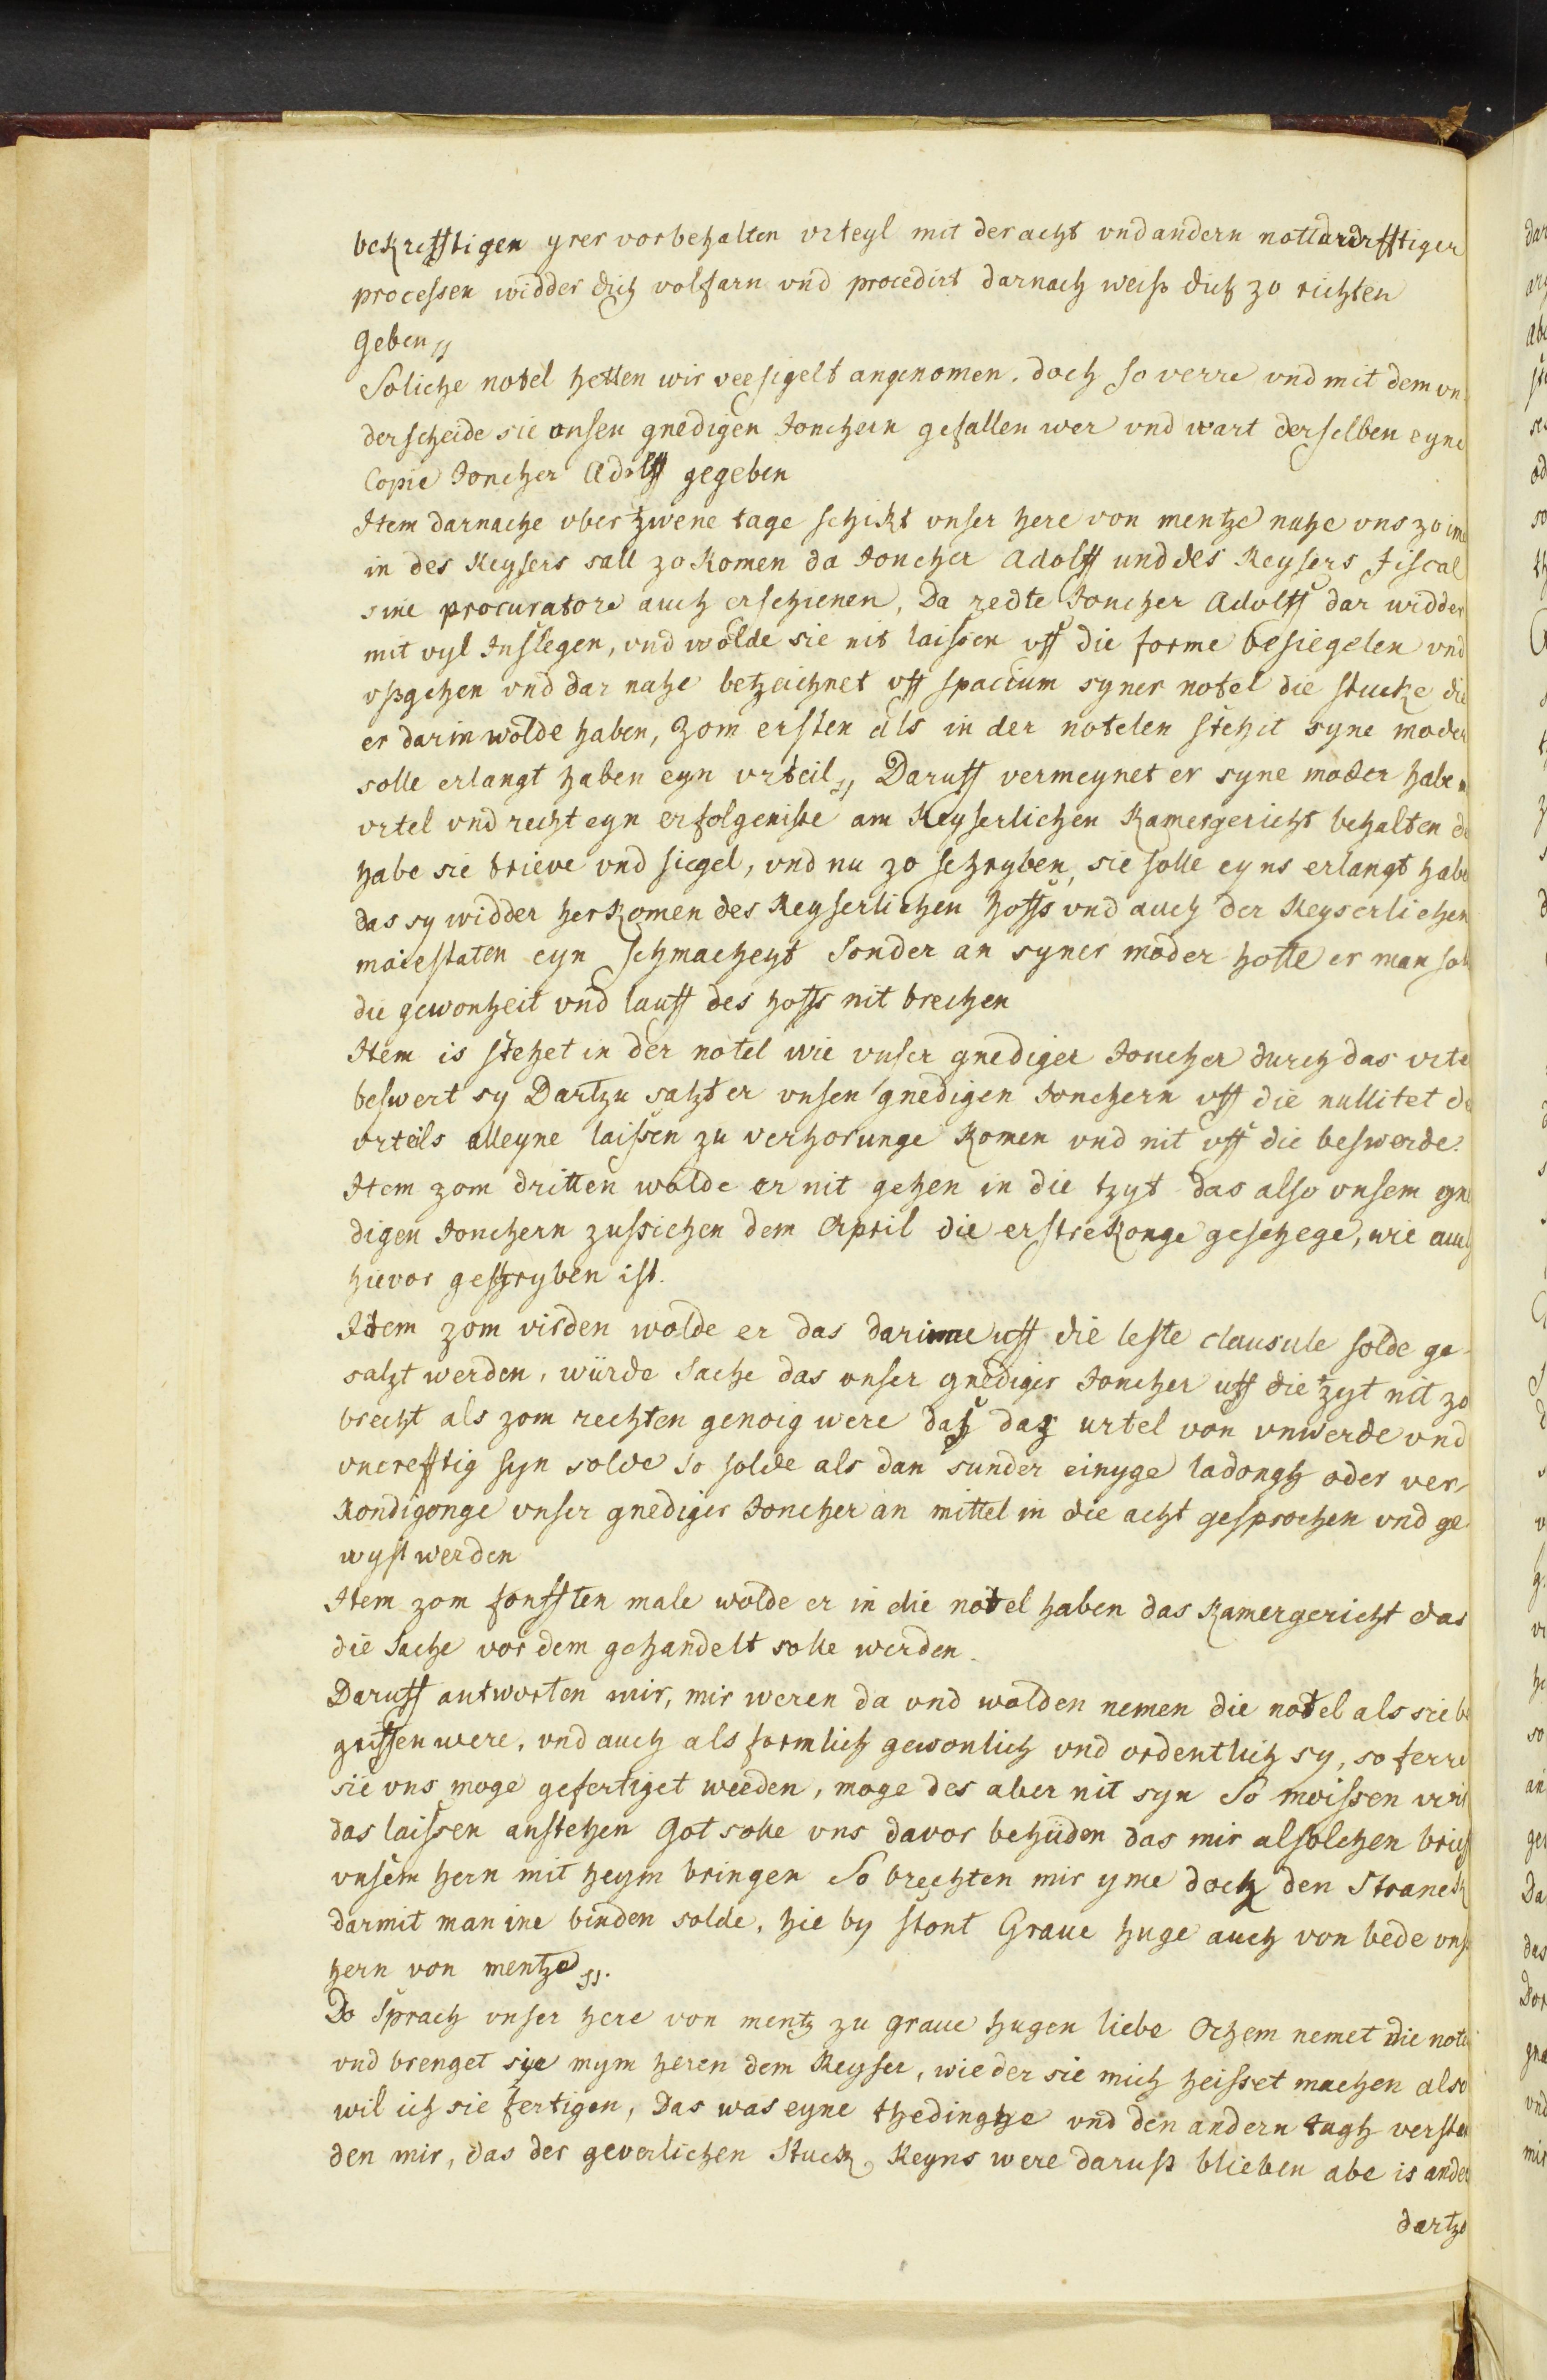 bekrefftigen yrer vorbehalten vrteyl mit der acht vnd andern nottdurdrfftiger
processen widder dich volfarn vnd procedirt darnach weiss dich zo richten
Geben
Soliche notel hetten wir veesigelt angenomen. doch so verre vnd mit dem vn
derscheide sie onsen gnedigen Jonchern gefallen wer vnd wart derselben eyne
Copie Joncher Adolff gegeben
Item darnache vber zwene tage schikt vnser here von mentze nahe vns zo ime
in des Keysers sall zo komen da Joncher Adolff und des Keysers Fiscal
sine procuratore auch erschienen, Da redte Joncher Adolff dar widder
mit vyl Inslegen, vnd wolde sie nit laissen vff die forme besiegelen vnd
vßgehen vnd dar nahe betzeichnet vff spacium syner notel die stucke die
er darin wolde haben, Zom ersten als in der notelen stehit syne moder
solle erlangt haben eyn vrteil, Daruff vermeynet er syne moder habe
vrtel vnd recht eyn erfolgenisse am Keyserlichen Kamergericht behalten
habe sie brieve vnd siegel, vnd nu zo schryben, sie solle eyns erlangt habe
das sy widder herkomen des Keyserlichen hoffs vnd auch der Keyserlichen
maiestaten eyn schmacheyt sonder an syner moder hotte er man sol
die gewonheit vnd lauff des hoffs nit brechen
Item is stehet in der notel wie vnser gnediger Joncher durch das vrte
beswert sy Dartzu salzt er vnsen gnedigen Jonchern vff die nullitet
vrteils alleyne laissen zu verhorunge komen vnd nit vff die beswerde.
Item zom dritten wolde er nit gehen in die tzyt das also vnsem gne
digen Jonchern zussichen dem April die erstrekonge geschege, wie auch
hievor geschryben ist.
Idem zom virden wolde er das darinne uff die leste clausule solde ge-
salzt werden, würde sache das onser gnediger Joncher uff die tzyt nit zo
brecht als zom rechten genoig were das das urtel von vnwerde vnd
vncrefftig syn solde so solde als dan sunder einyge ladongh oder ver-
kondigonge vnser gnediger Joncher an mittel in die acht gesprochen vnd ge
wyst werden
Item zom fonfften male wolde er in die notel haben das Kamergericht das
die sache vor dem gehandelt solle werden.
Daruff antworten mir, mir weren da vnd wolden nemen die notel als sie be
griffen were, vnd auch als formlich gewonlich vnd ordentlich sy, so ferre
sie vns moge gefertiget weeden, moge des aber nit syn So moissen wir
das laissen anstehen Got solle vns davor behüden das mir alsolchen brieff
vnsem hern mit heym bringen So brechten mir yme doch den Stranck
darmit man ine binden solde, hie by stont Graue huge auch von bede vns
hern von mentze.
Do sprach vnser here von mentz zu graue hugen liebe Ochem nemet die note
vnd brenget sye mym heren dem Keyser, wie der sie mich heisset machen also
wil ich sie fertigen, Das was eyne thedinghe vnd den andern tagh verston
den mir, das der geverlichen Stuck Keyns were daruss blieben abe is ander
dartzo